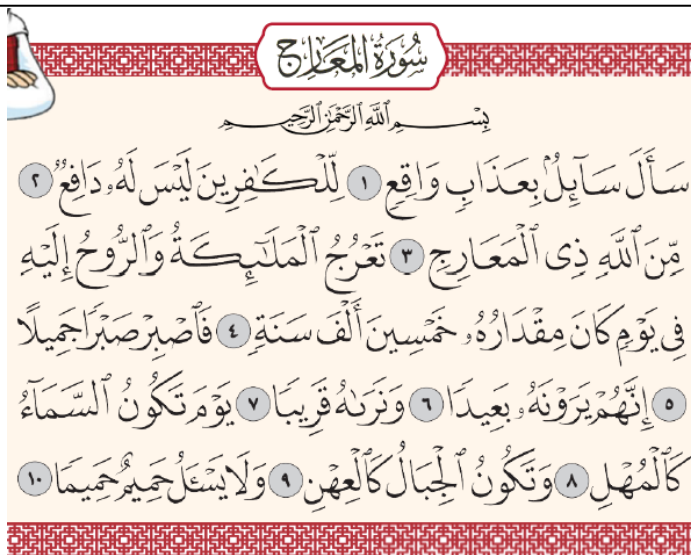 سُورَةُ المَعَارِج
بِسْمِ ٱللَّهِ ٱلرَّحْمَٰنِ ٱلرَّحِيمِ
سَأَلَ سَآئِلُۢ بِعَذَابٖ وَاقِعٖ ١ لِّلۡكَٰفِرِينَ لَيۡسَ لَهُۥ دَافِعٞ ٢
مِّنَ ٱللَّهِ ذِي ٱلۡمَعَارِجِ ٣ تَعۡرُجُ ٱلۡمَلَٰٓئِكَةُ وَٱلرُّوحُ إِلَيۡهِ
فِي يَوۡمٖ كَانَ مِقۡدَارُهُۥ خَمۡسِينَ أَلۡفَ سَنَةٖ ٤ فَٱصۡبِرۡ صَبۡرٗا جَمِيلًا
٥ إِنَّهُمۡ يَرَوۡنَهُۥ بَعِيدٗا ٦ وَنَرَىٰهُ قَرِيبٗا ٧ يَوۡمَ تَكُونُ ٱلسَّمَآءُ
كَٱلۡمُهۡلِ ٨ وَتَكُونُ ٱلۡجِبَالُ كَٱلۡعِهۡنِ ٩ وَلَا يَسۡـَٔلُ حَمِيمٌ حَمِيمٗا ١٠